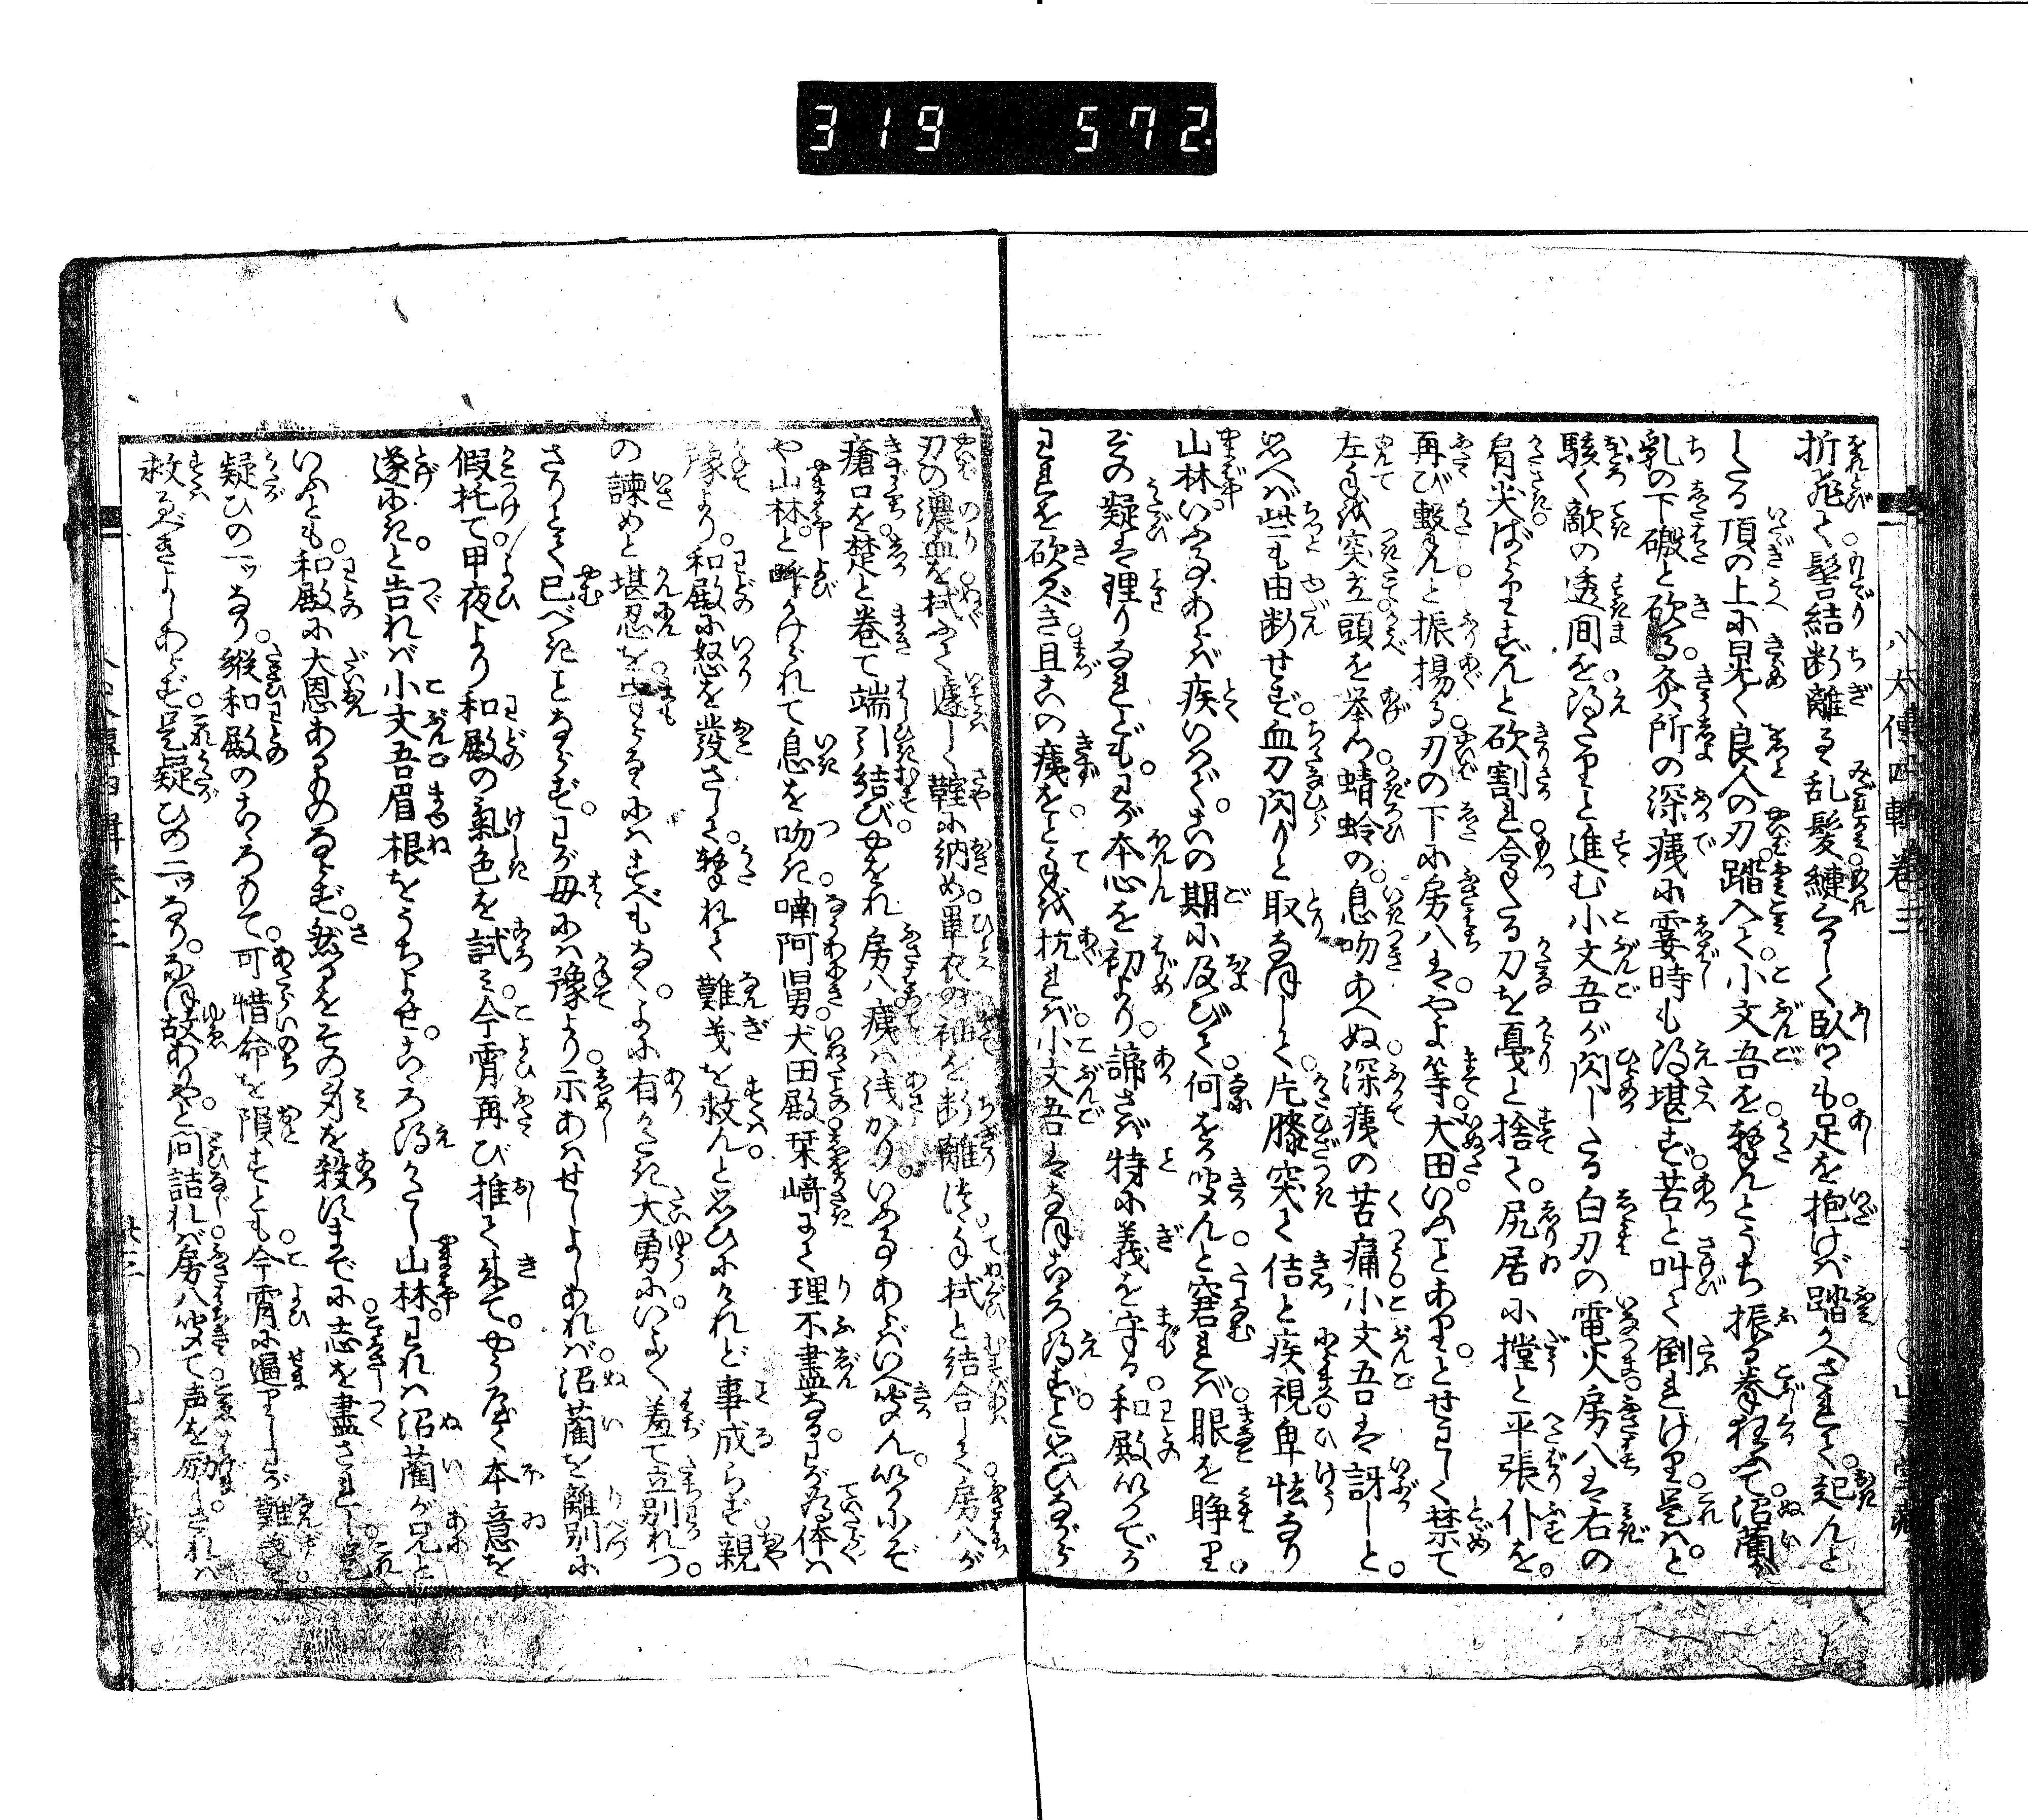 319 572.
八犬傳四輯卷三
折飛て髻結断離る乱髪縺るゝしく臥つも足を抱けバ踏かへされて起んと
したる頂の上に晃く良人の刃踏入て小文吾を撃んとうち振る拳狂ふて沼藺が
乳の下礑と砍る灸所の深痍に霎時も得堪ず苦と叫て倒れけり是ハと
駭く敵の透間を得たりと進む小文吾が閃したる白刃の電火房八は右の
肩尖ばらりずんと砍割れ含たる刀を戞と捨て尻居に摚と平張仆を
再び撃んと振揚る刃の下に房八はやよ等犬田いふことありとせわしく禁て
左手を突立頭を挙つ蜻蛉の息吻あへぬ深痍の苦痛小文吾は訝しと
思へバ些も由断せず血刀閃りと取なほして片膝突て佶と疾視卑怯なり
山林いふ事あらバ疾いへかしこの期に及びて何をか聞んと窘れバ眼を睜り
その疑は理りなれどもわが本心を初より諦さバ特に義を守る和殿いかでか
われを砍べき且この痍をと手を抗れバ小文吾はなほこゝろ得ずと思ひながら
刃の濃血を拭ふて遽しく鞘に納め単衣の袖を断離つゝ手拭と結合して房八が
瘡口を楚と巻て端引結びやをれ房八痍ハ浅かりいふ事あらバいへ聞ん以かにぞ
や山林と呼かけられて息を吻き喃阿舅犬田殿栞﨑にて理不盡なるわが為体ハ
豫より和殿に怒を發さして撃れて難義を救んと思ひにけれど事成らず親
の諫めと堪忍を守るとなるにハすべもなくよに有かたき大勇にいよゝ羞て立別れつ
さりとて已べきことならずわが母にハ豫より示あはせしよしあれバ沼藺を離別に
假托て甲夜より和殿の氣色を試ミ今宵再び推て来てやうやく本意を
遂にきと告れバ小文吾眉根をうちよせこゝろ得がたし山林われハ沼藺が兄と
いふとも和殿に大恩あるものならず然るをその身を殺すまでに志を盡されし是
疑ひの一ッなり縦和殿のこゝろもて可惜命を隕すとも今宵に逼りしわが難義を
救るべきよしあらず是疑ひの二ッなりなほ故ありやと問詰れバ房八聞て声を励しされハ